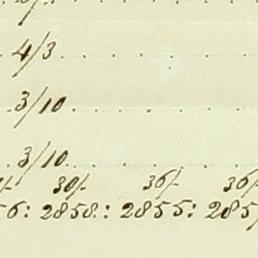 4/3
3/10
3/10
30/- 36/- 36/-
56: 2858: 2855: 285